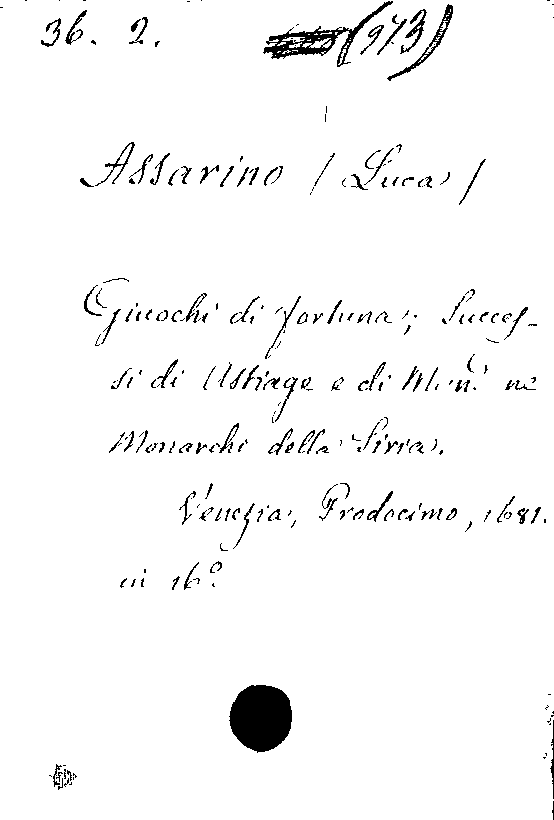 36. 2. (973)
Assarino / Luca /
Giuochi di fortuna; Succes-
si di Astiage e di
Monarchi della Siria.
Venezia, Prodocimo, 1681.
in 16º.